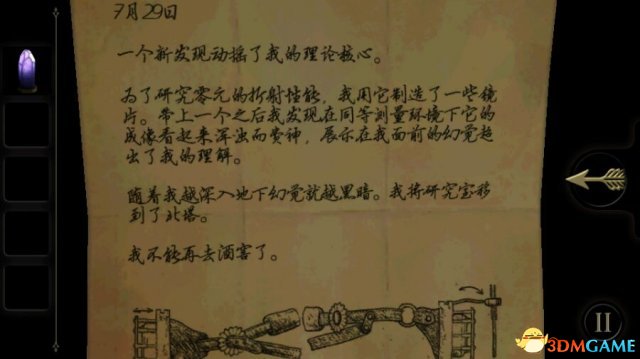 7月29日
一个新发现动摇了我的理论核心。
为了研究零元的折射性能，我用它制造了一些镜
片。带上一个之后我发现在同等测量环境下它的
成像看起来浑浊而费神，展示在我面前的幻觉超
出了我的理解。
随着我越深入地下幻觉就越黑暗。我将研究室移
到了北塔。
我不能再去酒窖了。
3DMGAME